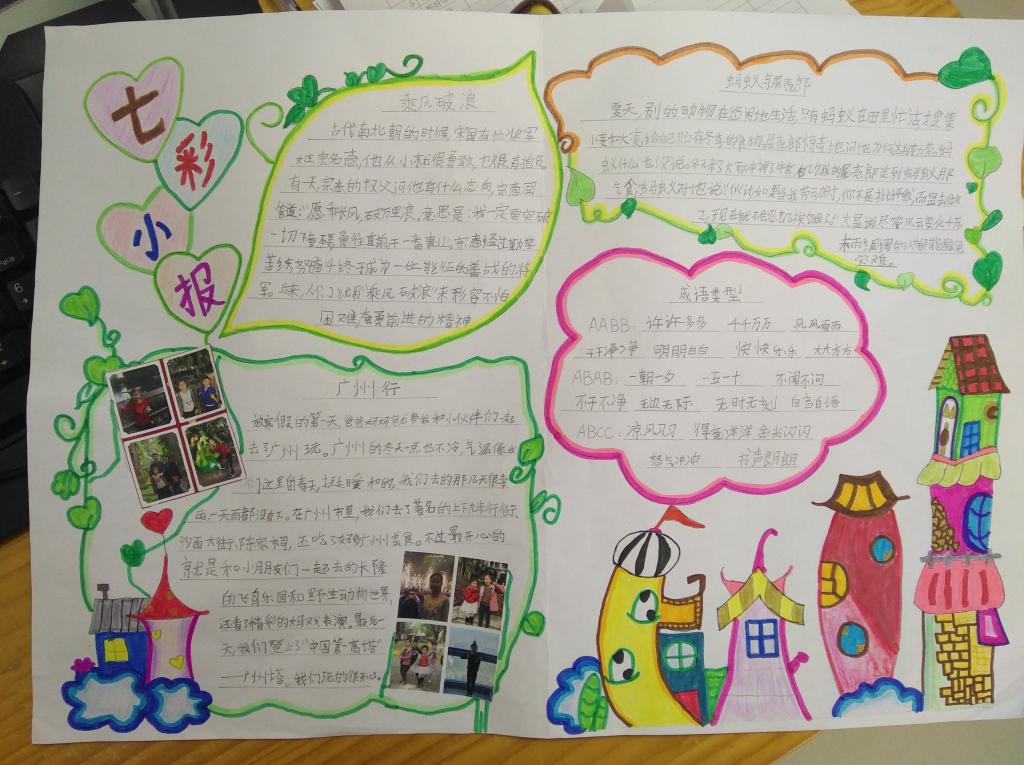 七彩小报
乘风破浪
古代南北朝的时候,宋国有位将军
姓宗名悫,他从小就很勇敢,也很有抱负。
有天,宗悫的叔父问他有什么志向,宗悫回
答道:"愿乘风,破万里浪。意思是:我一定要突破
一切障碍勇往直前干一番事业。宗悫经过勤学
苦练努力奋斗终于成为一位能征善战的将
军。后来,人们就用"乘风破浪"来形容不怕
困难奋勇前进的精神
广州行
放寒假的第一天,爸爸妈妈带我和小伙伴们一起
去了广州玩。广州的冬天一点也不冷,气温像我
们这里的春天,挺暖和的,我们去的那几天很幸
运,一天雨都没有下。在广州市里,我们去了著名的上下九步行街、
沙面大街、陈家祠,还吃了好多广州美食。不过最开心的
就是和小朋友们一起去的长隆
的飞鸟乐园和野生动物世界,
还看了精彩的大马戏表演。最后一
天,我们登上了"中国第一高塔"
——广州塔,我们玩的很开心。
蚂蚁与屎壳郎
夏天,别的动物在悠闲地生活,只有蚂蚁在田里忙活搜集
小麦和大麦给自己贮存冬季的食物。屎壳郎惊奇地问他为何这
蚁什么也没说。
气食,蚂蚁对他说:"伙计,如果当我劳动时,你不是批评我,而是去做
工,现在就不会忍饥挨饿了。"这是说尽管风云变化万
的人都能避免
灾难。
成语类型
AABB: 许许多多 千千万万 风风雨雨
干干净净 明明白白 快快乐乐 大大方方
ABAB: 一朝一夕 一五一十 不闻不问
不干不净 无边无际 无时无刻 自言自语
ABCC: 凉风习习 得意洋洋 金光闪闪
怒气冲冲 书声朗朗